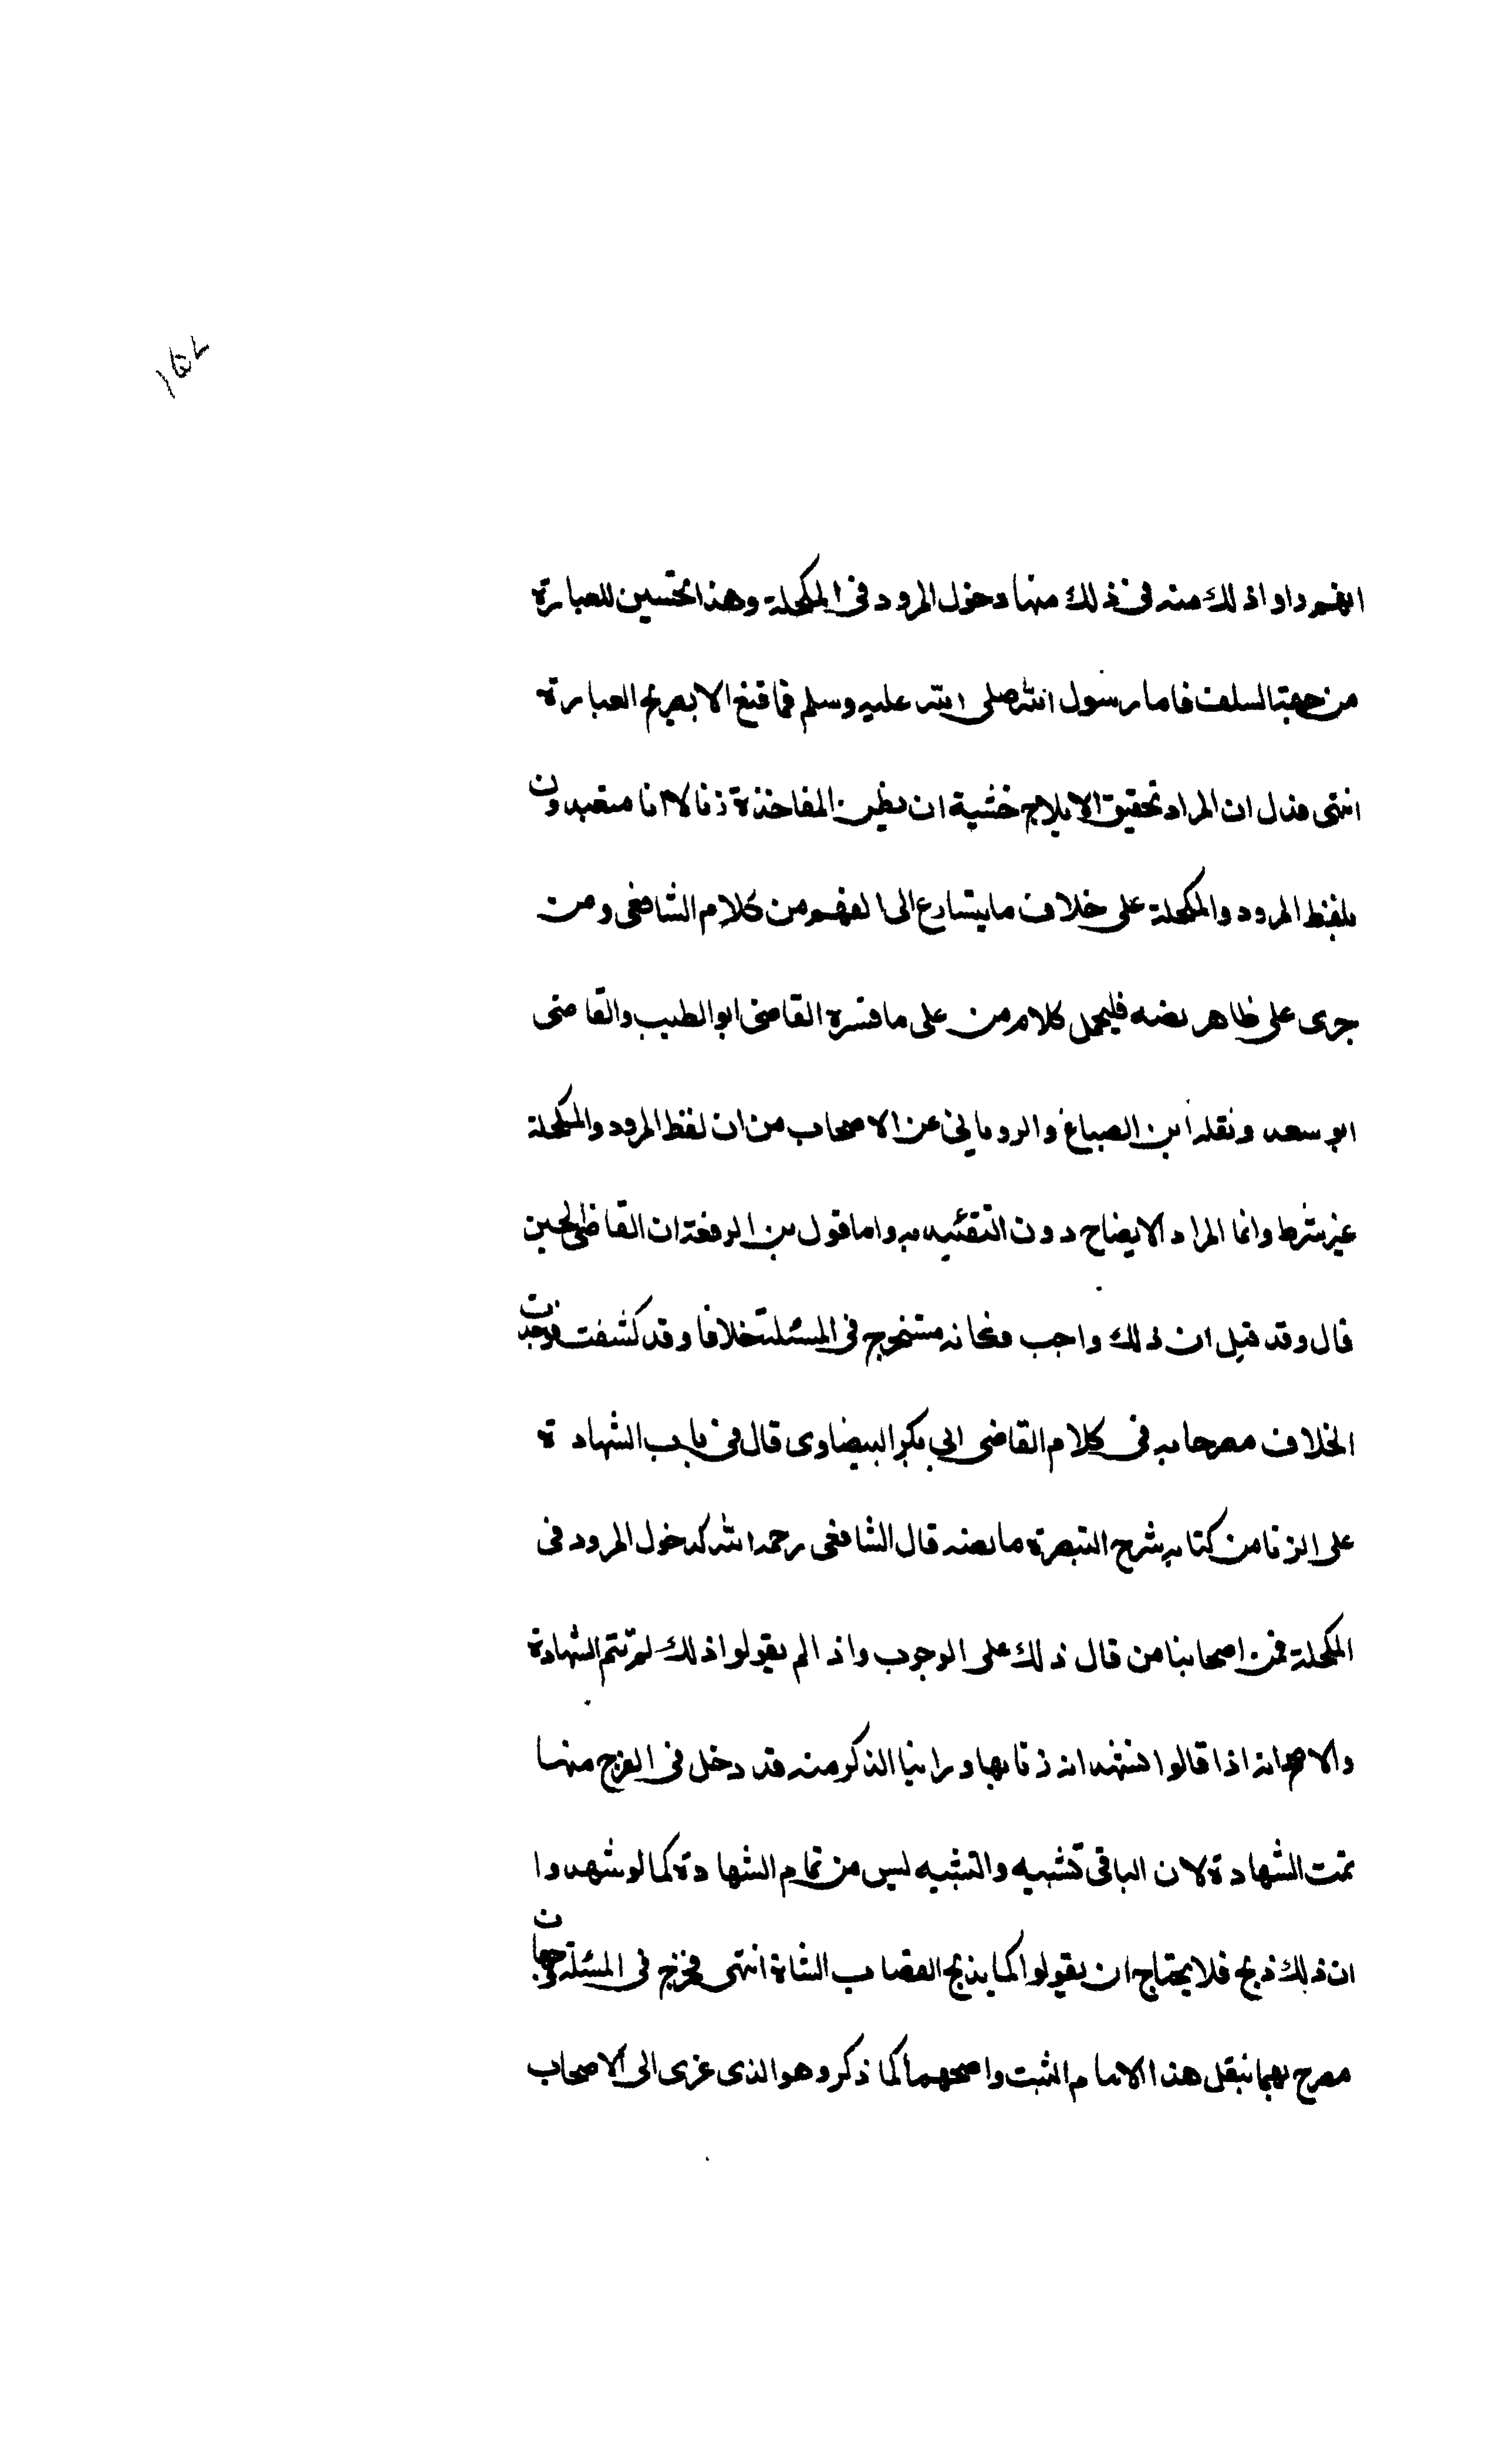 انهم راوا ذلك منه في ذلك منها دخول المرود في المكحلة وهذا تحسين للعبارة
من جهة السلف فاما رسول الله صلى الله عليه وسلم فما قنع الا بصريح العبارة
انتهى فدل ان المراد تحقيق الايلاج خشية ان يظن المفاخذة زنا لا انا متعبدون
بلفظ المرود والمكحلة على خلاف ما يتسارع الى الفهم من كلام الشافعى ومن
جرى على ظاهر نصه فليحمل كلام من على ما فسره القاضى ابو الطيب والقاضى
ابو سعد ونقله ابن الصباغ والرويانى عن الاصحاب من ان لفظ المرود والمكحلة
غير شرط وانما المراد الايضاح دون التقئيد به واما قول بن الرفعة ان القاضى الحسين
قال وقد قيل ان ذلك واجب فكانه مستخرج فى المسئلة خلافا وقد كشفت فوجدت
الخلاف مصرحا به فى كلام القاضى ابي بكر البيضاوى قال فى باب الشهادة
على الزنا من كتابه شرح التبصرة ما نصه قال الشافعى رحمه الله كدخول المرود فى
المكحلة فمن اصحابنا من قال ذلك على الوجوب واذا لم يقولوا ذلك لم تتم الشهادة
والاصح انه اذا قالوا نشهد انه زنا بها وراينا الذكر منه قد دخل فى الفرج منها
تمت الشهادة لان الباقى تشبيه والتشبيه ليس من تمام الشهادة كما لو شهدوا
ان ذلك ذبح فلا يحتاج ان يقولوا كما يذبح القصاب الشاة انتهى فخرج فى المسئلة وجهان
مصرح بهما بنقل هذا الامام الثبت واصحهما كما ذكر وهو الذى عزى الى الاصحاب